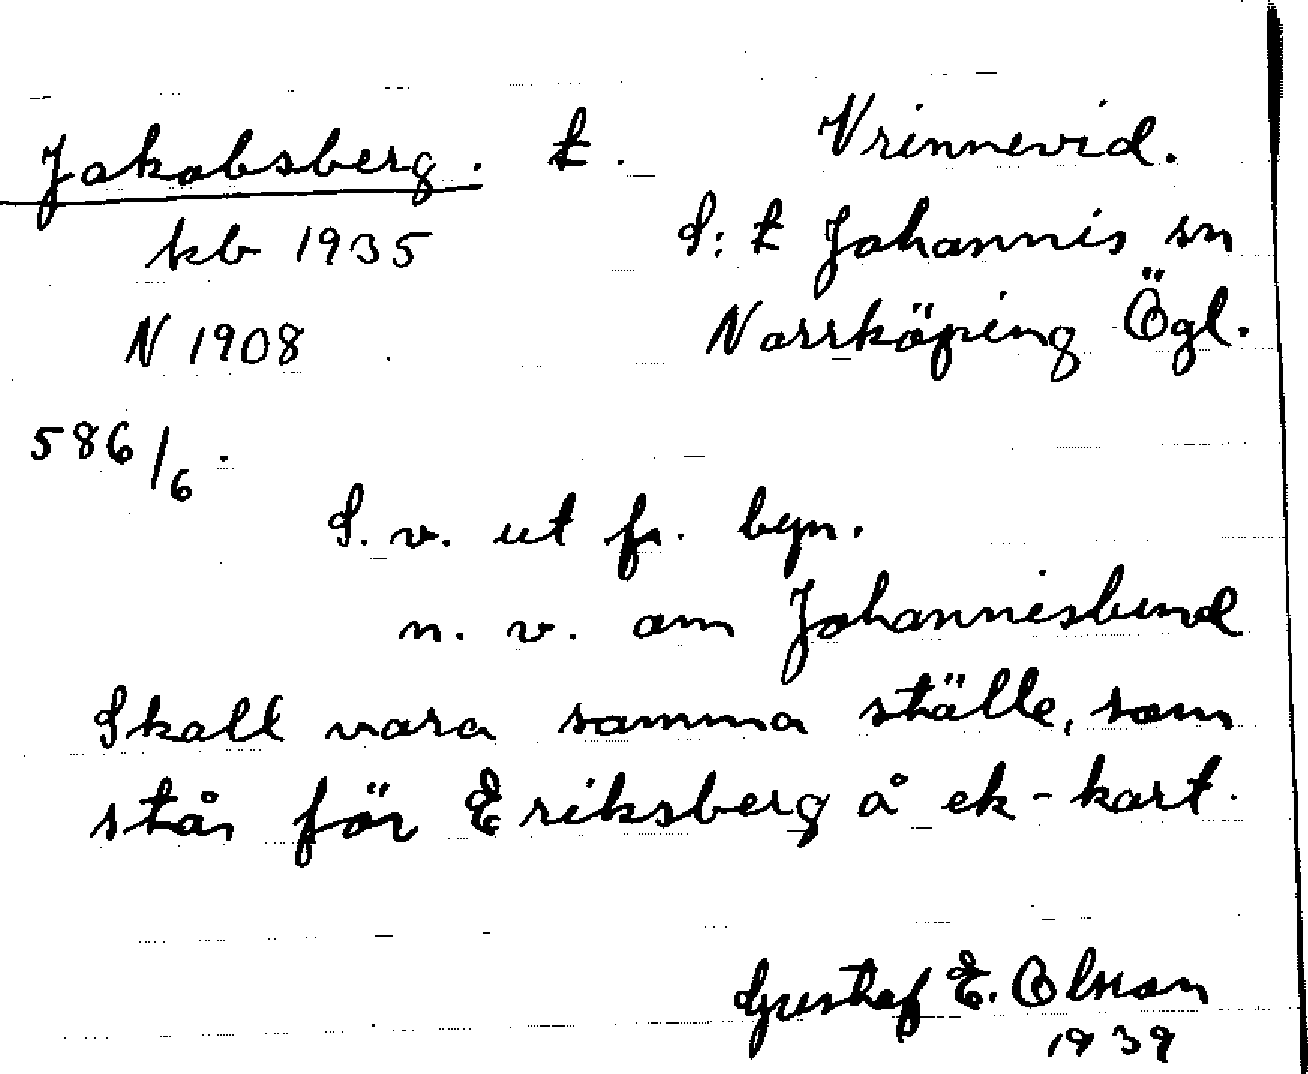 Jakobsberg. t. Vrinnevid.
kb 1935 S:t Johannis sn
N 1908 Norrköping Ögl.
586/6.
S. v. ut fr. byn.
n. v. om Johannislund
Skall vara samma ställe, som
står för Eriksberg å ek-kart.
Gustaf E. Olsson
1939